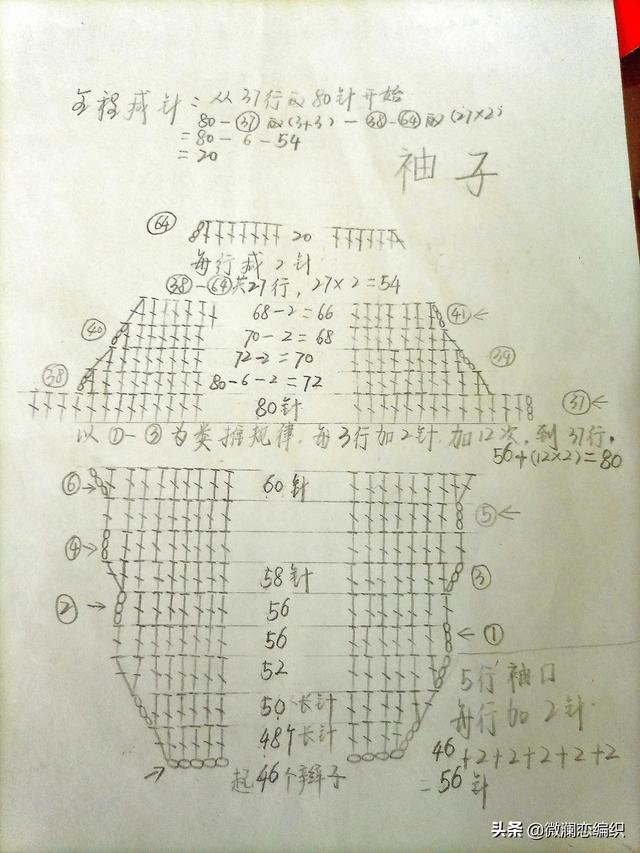 全程减针：从37行取80针开始
80-㊲取(3+3)-㊳-64取(27×2)
=80-6-54
=20
袖子
64 20
每行减2针
㊳-64共27行，27×2=54
68-2=66 ㊶←
㊵ 70-2=68
72-2=70 ㊴
㊳ 80-6-2=72
80针 ㊲←
以①-③为类推规律，每3行加2针，加12次，到37行，
56+(12×2)=80
⑥ 60针
⑤←
④→
58针 ③
②→ 56
56 ←①
52 5行袖口
50长针 每行加2针
48个长针 46+2+2+2+2+2
→ 起46个辫子 =56针
头条 @微澜恋编织